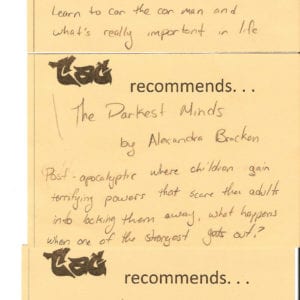 learn to car the car man and
what's really important in life
recommends...
The Darkest Minds
by Alexandra Bracken
Post-apocalyptic where children gain
terrifying powers that scare the adults
into locking them away, what happens
when one of the strongest gets out?
recommends...